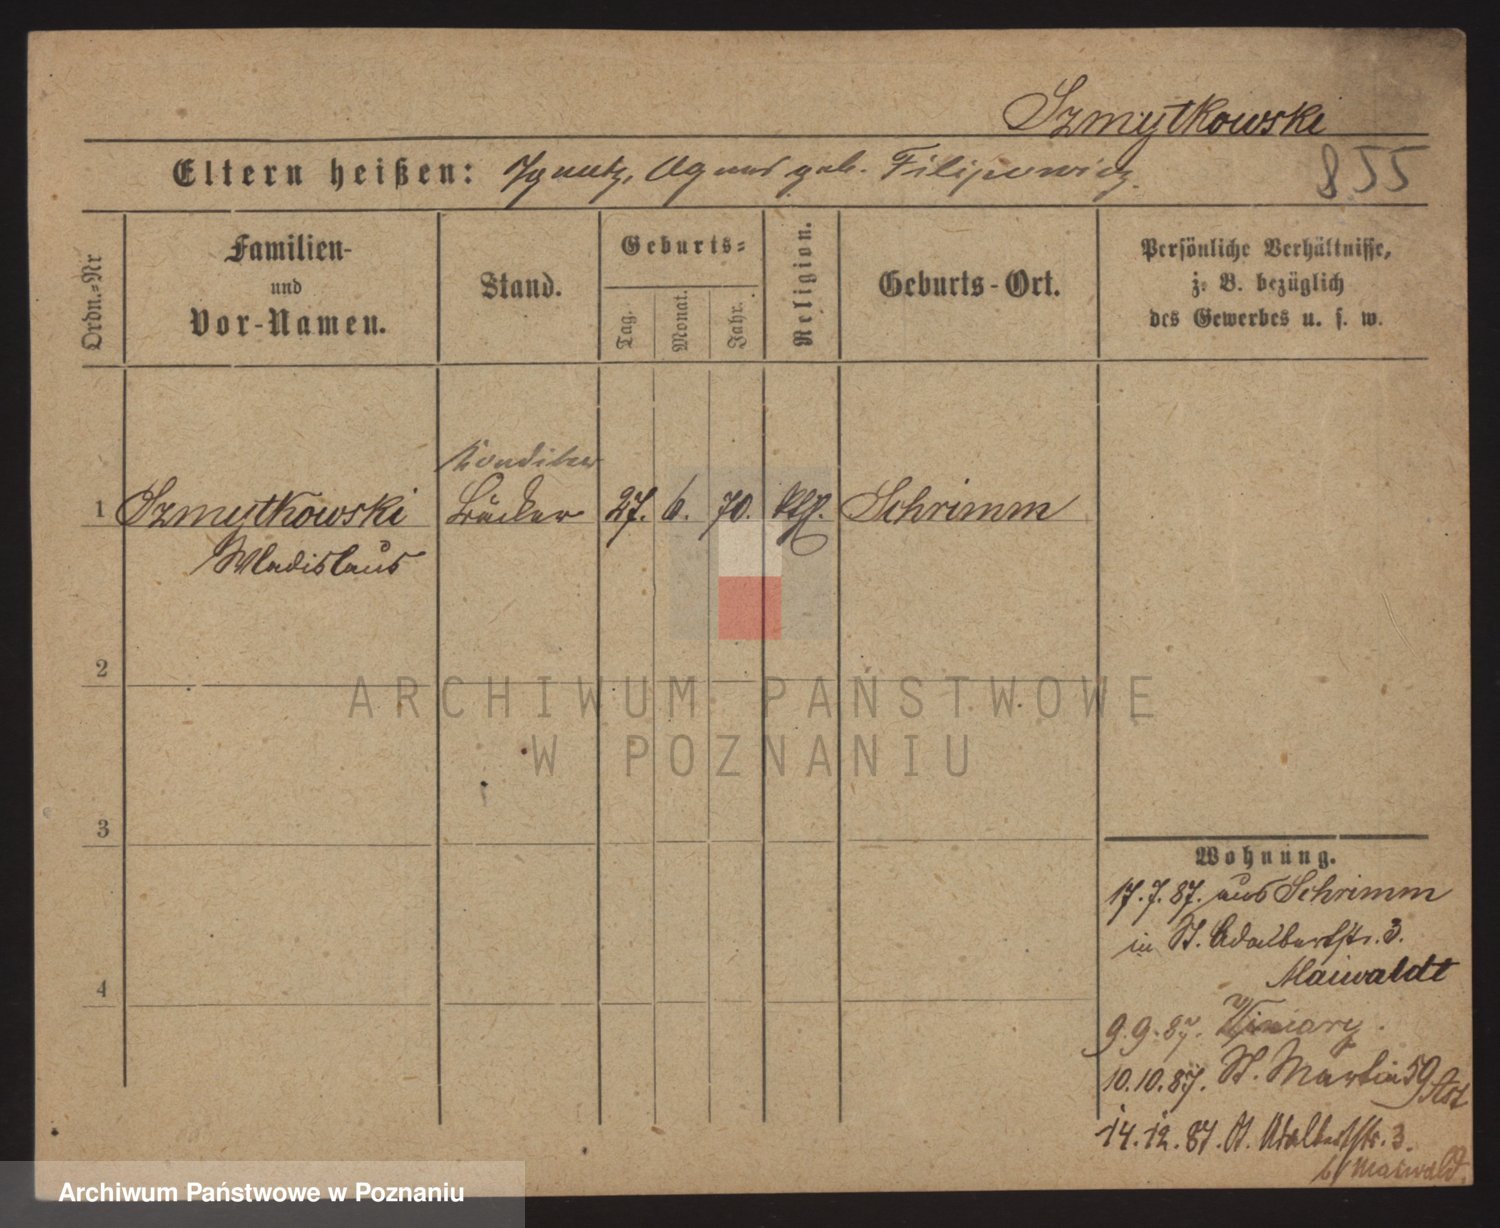 Szmytkowski
Eltern heißen: Ignatz, Agnes geb. Filipowicz.
855
Ordn.-Nr
Familien-
und
Vor-Namen.
Stand.
Geburts-
Tag.
Monat.
Jahr.
Religion.
Geburts-Ort.
Persönliche Verhältnisse,
z. B. bezüglich
des Gewerbes u. s. w.
Konditor
1 Szmytkowski Bäcker 27. 6. 70. Schrimm
Wladislaus
2
ARCHIWUM PAŃSTWOWE
W POZNANIU
3
Wohnung.
17.7.87. aus Schrimm
in St. Adalbertstr. 3.
Maiwaldt
4
9.9.87. Winiary.
10.10.87. St. Martin 59
14.12.87. St. Adalbertstr. 3.
b/ Maiwald.
Archiwum Państwowe w Poznaniu